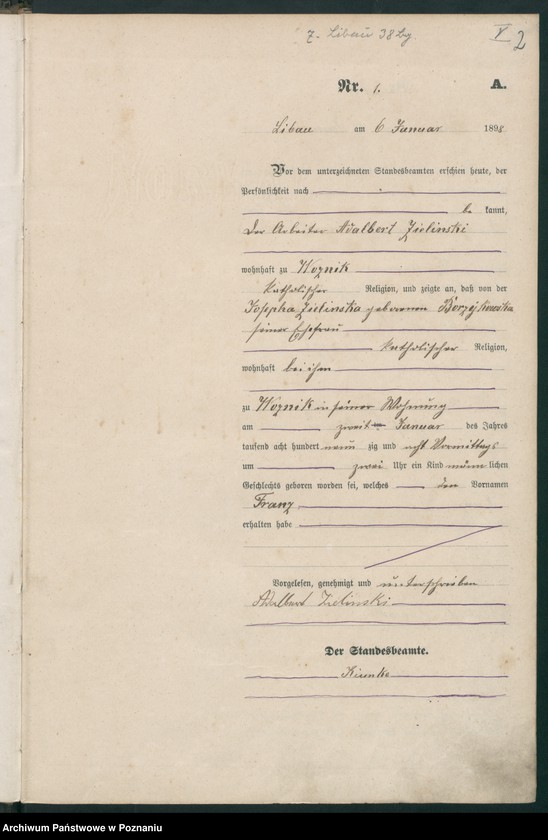 z. Libau 38 bg. V 2
Nr. 1. A.
Libau am 6 Januar 1898
Vor dem unterzeichneten Standesbeamten erschien heute, der
Persönlichkeit nach
be kannt,
der Arbeiter Adalbert Zielinski
wohnhaft zu Woznik
katholischer Religion, und zeigte an, daß von der
Josepha Zielinska geborenen
seiner Ehefrau
katholischer Religion,
wohnhaft bei ihm
zu Woznik in seiner Wohnung
am zweiten Januar des Jahres
tausend acht hundert neun zig und acht Vormittags
um zwei Uhr ein Kind männ lichen
Geschlechts geboren worden sei, welches den Vornamen
Franz
erhalten habe
Vorgelesen, genehmigt und unterschrieben
Adalbert Zielinski
Der Standesbeamte.
Archiwum Państwowe w Poznaniu